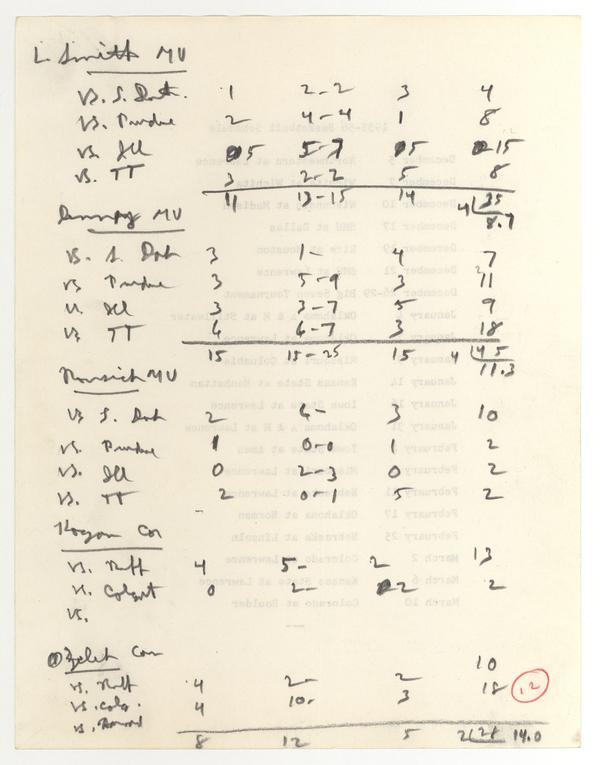 L. Smith MU
vs. S. Dak. 1 2-2 3 4
vs. Purdue 2 4-4 1 8
vs. Ill 5 5-7 5 15
vs. TT 3 2-2 5 8
11 13-15 14 4 35
8.7
MU
vs. S. Dak 3 1- 4 7
vs Purdue 3 5-9 3 11
vs. Ill 3 3-7 5 9
vs TT 4 6-7 3 18
15 15-25 15 4 45
11.3
MU
vs S. Dak 2 4- 3 10
vs. Purdue 1 0-0 1 2
vs. Ill 0 2-3 0 2
vs. TT 2 0-1 5 2
Cor
vs. 4 5- 2 13
vs. 0 2- 2 2
vs.
Corn 10
vs. 4 2- 2 18 12
vs. 4 10- 3
vs.
8 12 5 2 28 14.0
1955-56 Basketball Schedule
December 5 Northwestern at Lawrence
Wichita at Wichita
December 10 Wisconsin at Madison
December 17 SMU at Dallas
December 19 Rice at Houston
December 21 SMU at Lawrence
December 26-29 Big Seven Tournament
January Oklahoma A & M at Stillwater
January at Lawrence
January at Columbia
January 14 Kansas State at Manhattan
January Iowa State at Lawrence
January 31 Oklahoma A & M at Lawrence
February Iowa State at Ames
February at Lawrence
February at Lawrence
February 17 Oklahoma at Norman
February 25 Nebraska at Lincoln
March 2 Colorado at Lawrence
March 6 Kansas State at Lawrence
March 10 Colorado at Boulder